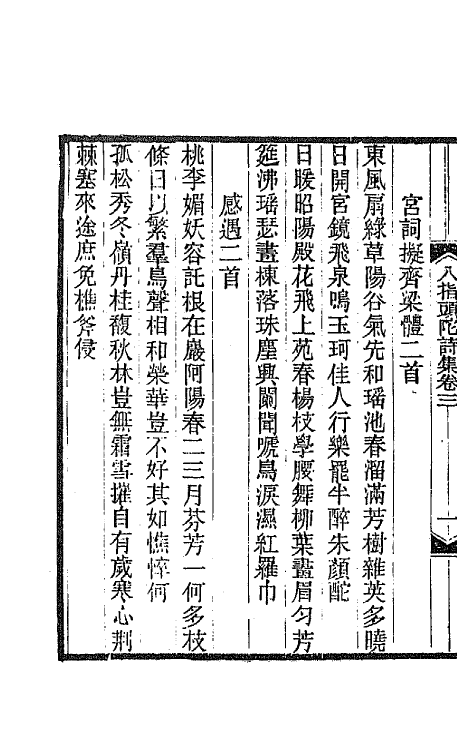 八指頭陀詩集卷三
一
宮詞擬齊梁體二首
東風扇綠草陽谷氣先和瑶池春溜滿芳樹雜英多曉
日開宮鏡飛泉鳴玉珂佳人行樂罷半醉朱顏酡
日暖昭陽殿花飛上苑春楊枝學腰舞柳葉畫眉勻芳
筵沸瑶瑟畫棟落珠塵興闌聞唬鳥淚濕紅羅巾
感遇二首
桃李媚妖容託根在巖阿陽春二三月芬芳一何多枝
條日以繁羣鳥聲相和榮華豈不好其如憔悴何
孤松秀冬嶺丹桂馥秋林豈無霜雪摧自有歲寒心荆
棘塞來途庶免樵斧侵